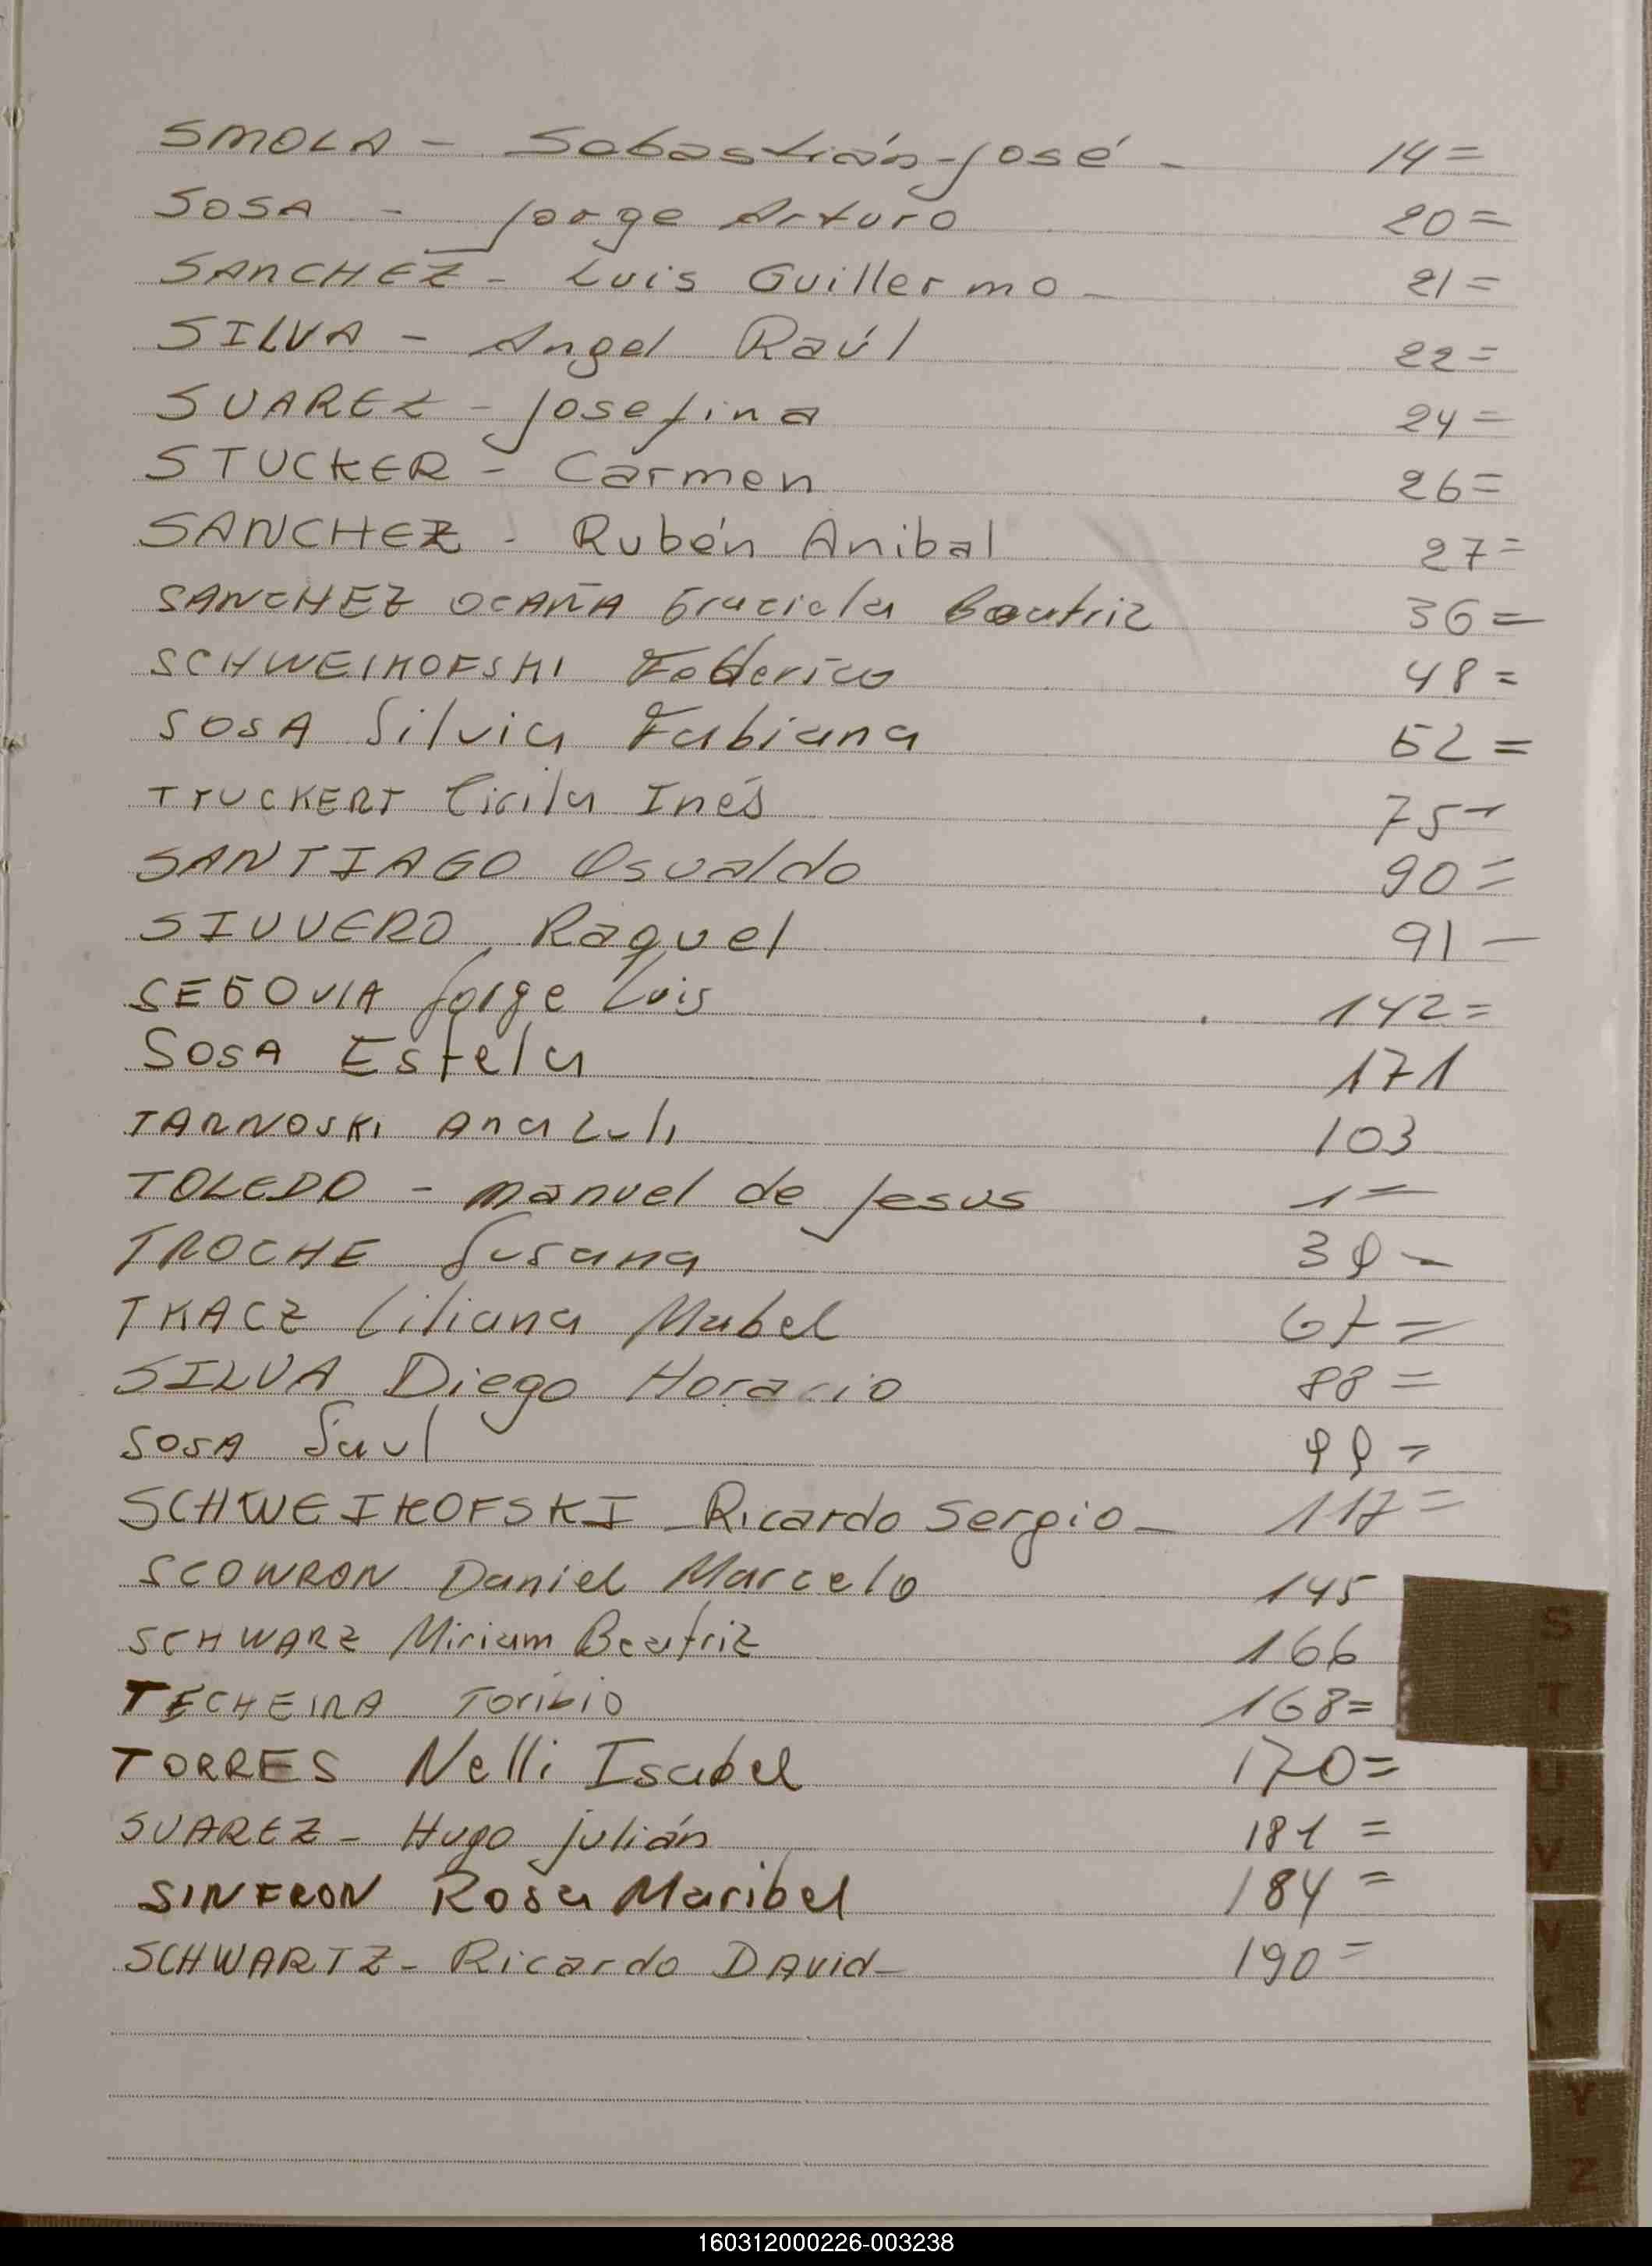 SMOLA - Sebastián José - 14=
SOSA - Jorge Arturo 20=
SANCHEZ - Luis Guillermo - 21=
SILVA - Angel Raúl 22=
SUAREZ - Josefina 24=
STUCKER - Carmen 26=
SANCHEZ - Rubén Anibal 27=
SANCHEZ OCAÑA Graciela Beatriz 36=
SCHWEIKOFSKI Federico 48=
SOSA Silvia Fabiana 52=
TTUCKERT Cirila Inés 75-
SANTIAGO Osvaldo 90=
SIVVERO, Raquel 91-
SEGOVIA Jorge Luis 142=
SOSA Estela 171
TARNOSKI Ana 103
TOLEDO - Manuel de Jesus 1=
TROCHE Susana 39-
TKACZ Liliana Mabel 67=
SILVA Diego Horacio 88=
SOSA Saul 99=
SCHWEIKOFSKI - Ricardo Sergio - 117=
SCOWRON Daniel Marcelo 145
SCHWARZ Miriam Beatriz 166
TECHEIRA Toribio 168=
TORRES Nelli Isabel 170=
SUAREZ - Hugo Julián 181=
SINFRON Rosa Maribel 184=
SCHWARTZ - Ricardo DAvid - 190=
S
T
U
V
Y
Z
160312000226-003238